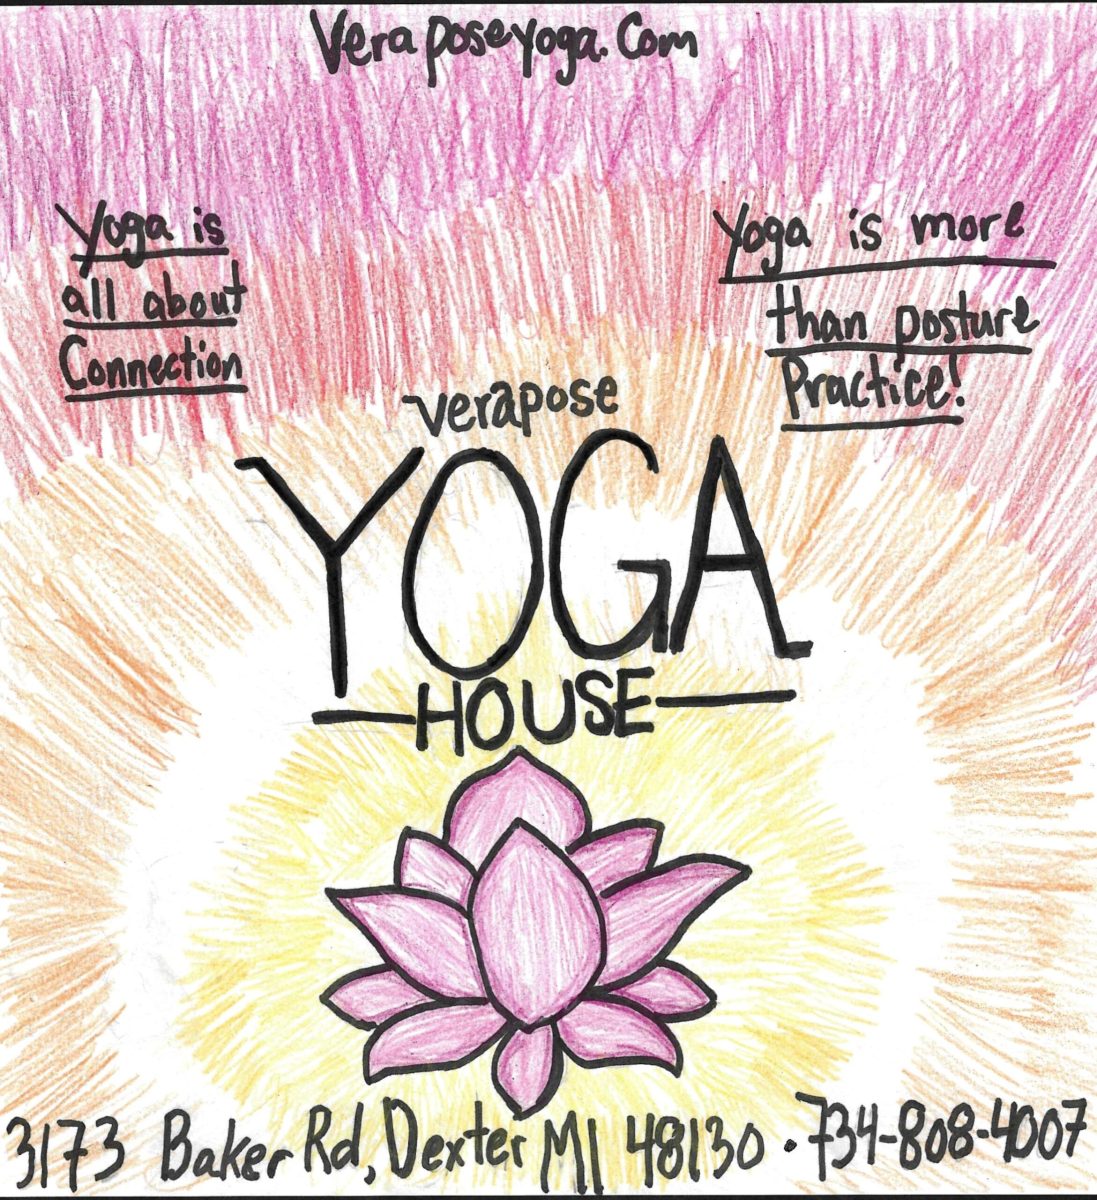 Veraposeyoga.Com
Yoga is
all about
Connection
Yoga is more
than posture
Practice!
verapose
YOGA
HOUSE
3173 Baker Rd, Dexter MI 48130 · 734-808-4007